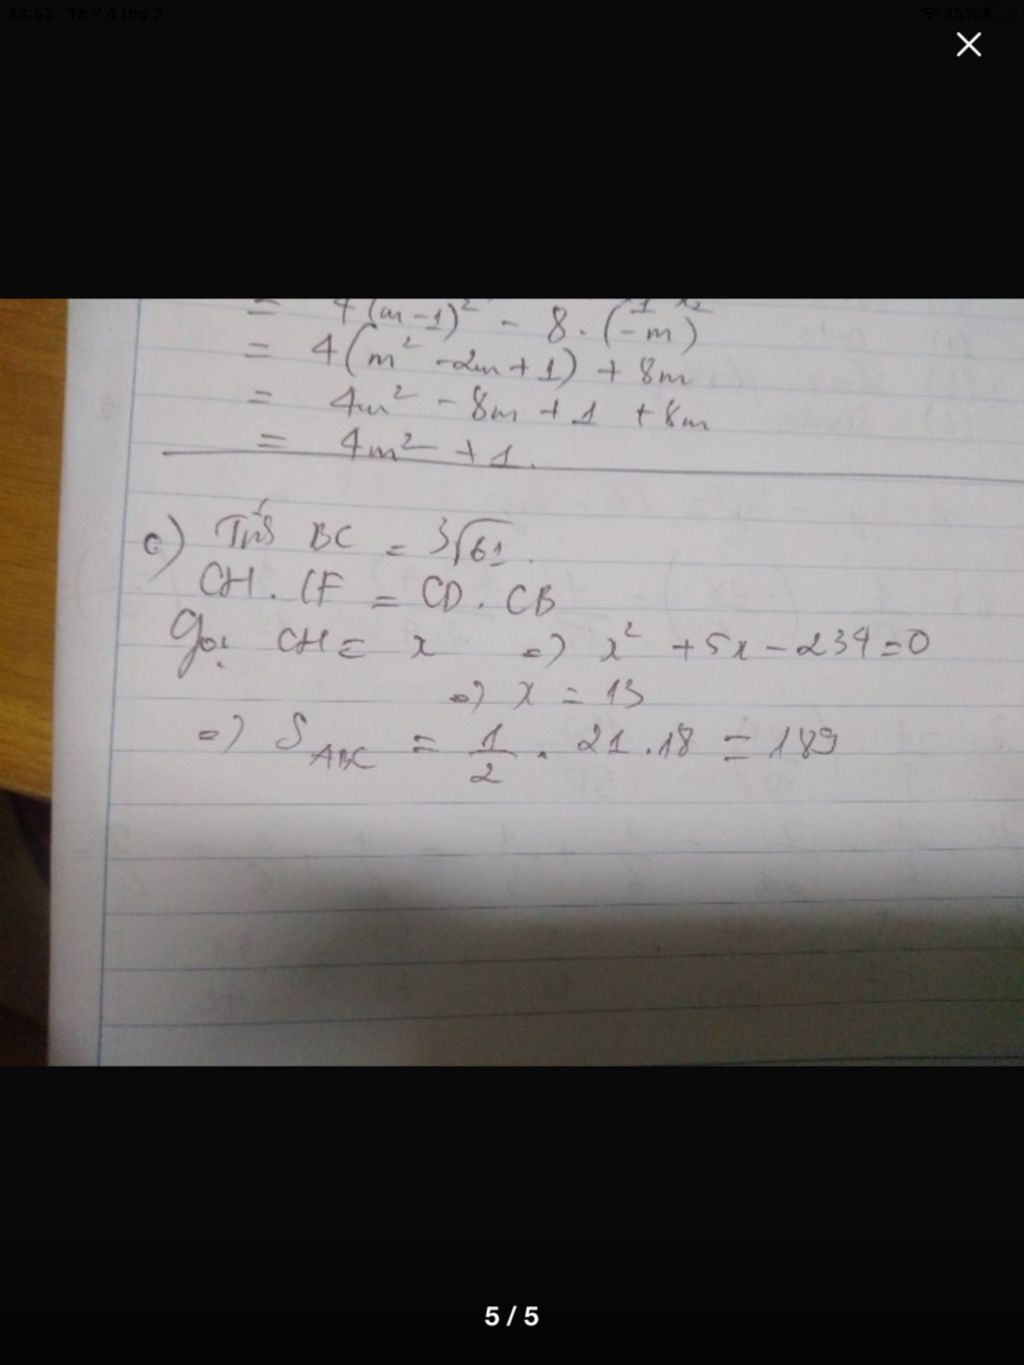 13:52 Th 7 4 thg 7 25%
= 4(m-1)² - 8.(-m)
= 4(m² -2m+1) + 8m
= 4m² - 8m + 1 + 8m
= 4m² + 1.
c) BC = 3√61.
CH. CF = CD. CB
Gọi CH = x => x² + 5x - 234 = 0
=> x = 13
=> S ABC = 1/2 . 21.18 = 189
5 / 5